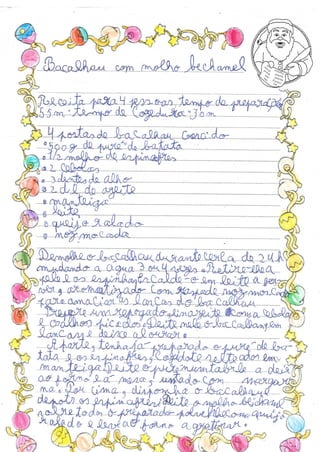 Bacalhau com molho bechamel
Receita para 4 pessoas, tempo de preparação
35m tempo de Cozedura: 30m
4 postas de bacalhau Cozido
500g de puré de batata
1/2 molho de espinafres
2 cebolas
3 dentes de alho
2 dl de azeite
manteiga
leite
queijo ralado
noz moscada
Demolhe o bacalhau durante cerca de 24h
mudando a água 3 ou 4 vezes. Retire-lhe a
pele e os espinhas. Calde-o em leite a
aromatizado com noz moscada
para amaciar as lascas do bacalhau
Prepare um refogado, azeite com a cebola
e o alho picados. Deite nele o bacalhau em
lascas e deixe alourar.
À parte, tenha já preparado o puré de ba-
tata e os espinafres, salteado em
manteiga. Deite o puré num tabule a deix
ao forno e a mesa, untado com margari
na. Por cima, disponha o bacalhau
depois os espinafres. Deite o molho bechamel
sobre todo o preparado polvilhe com queijo
ralado e leve ao forno a gratinar.